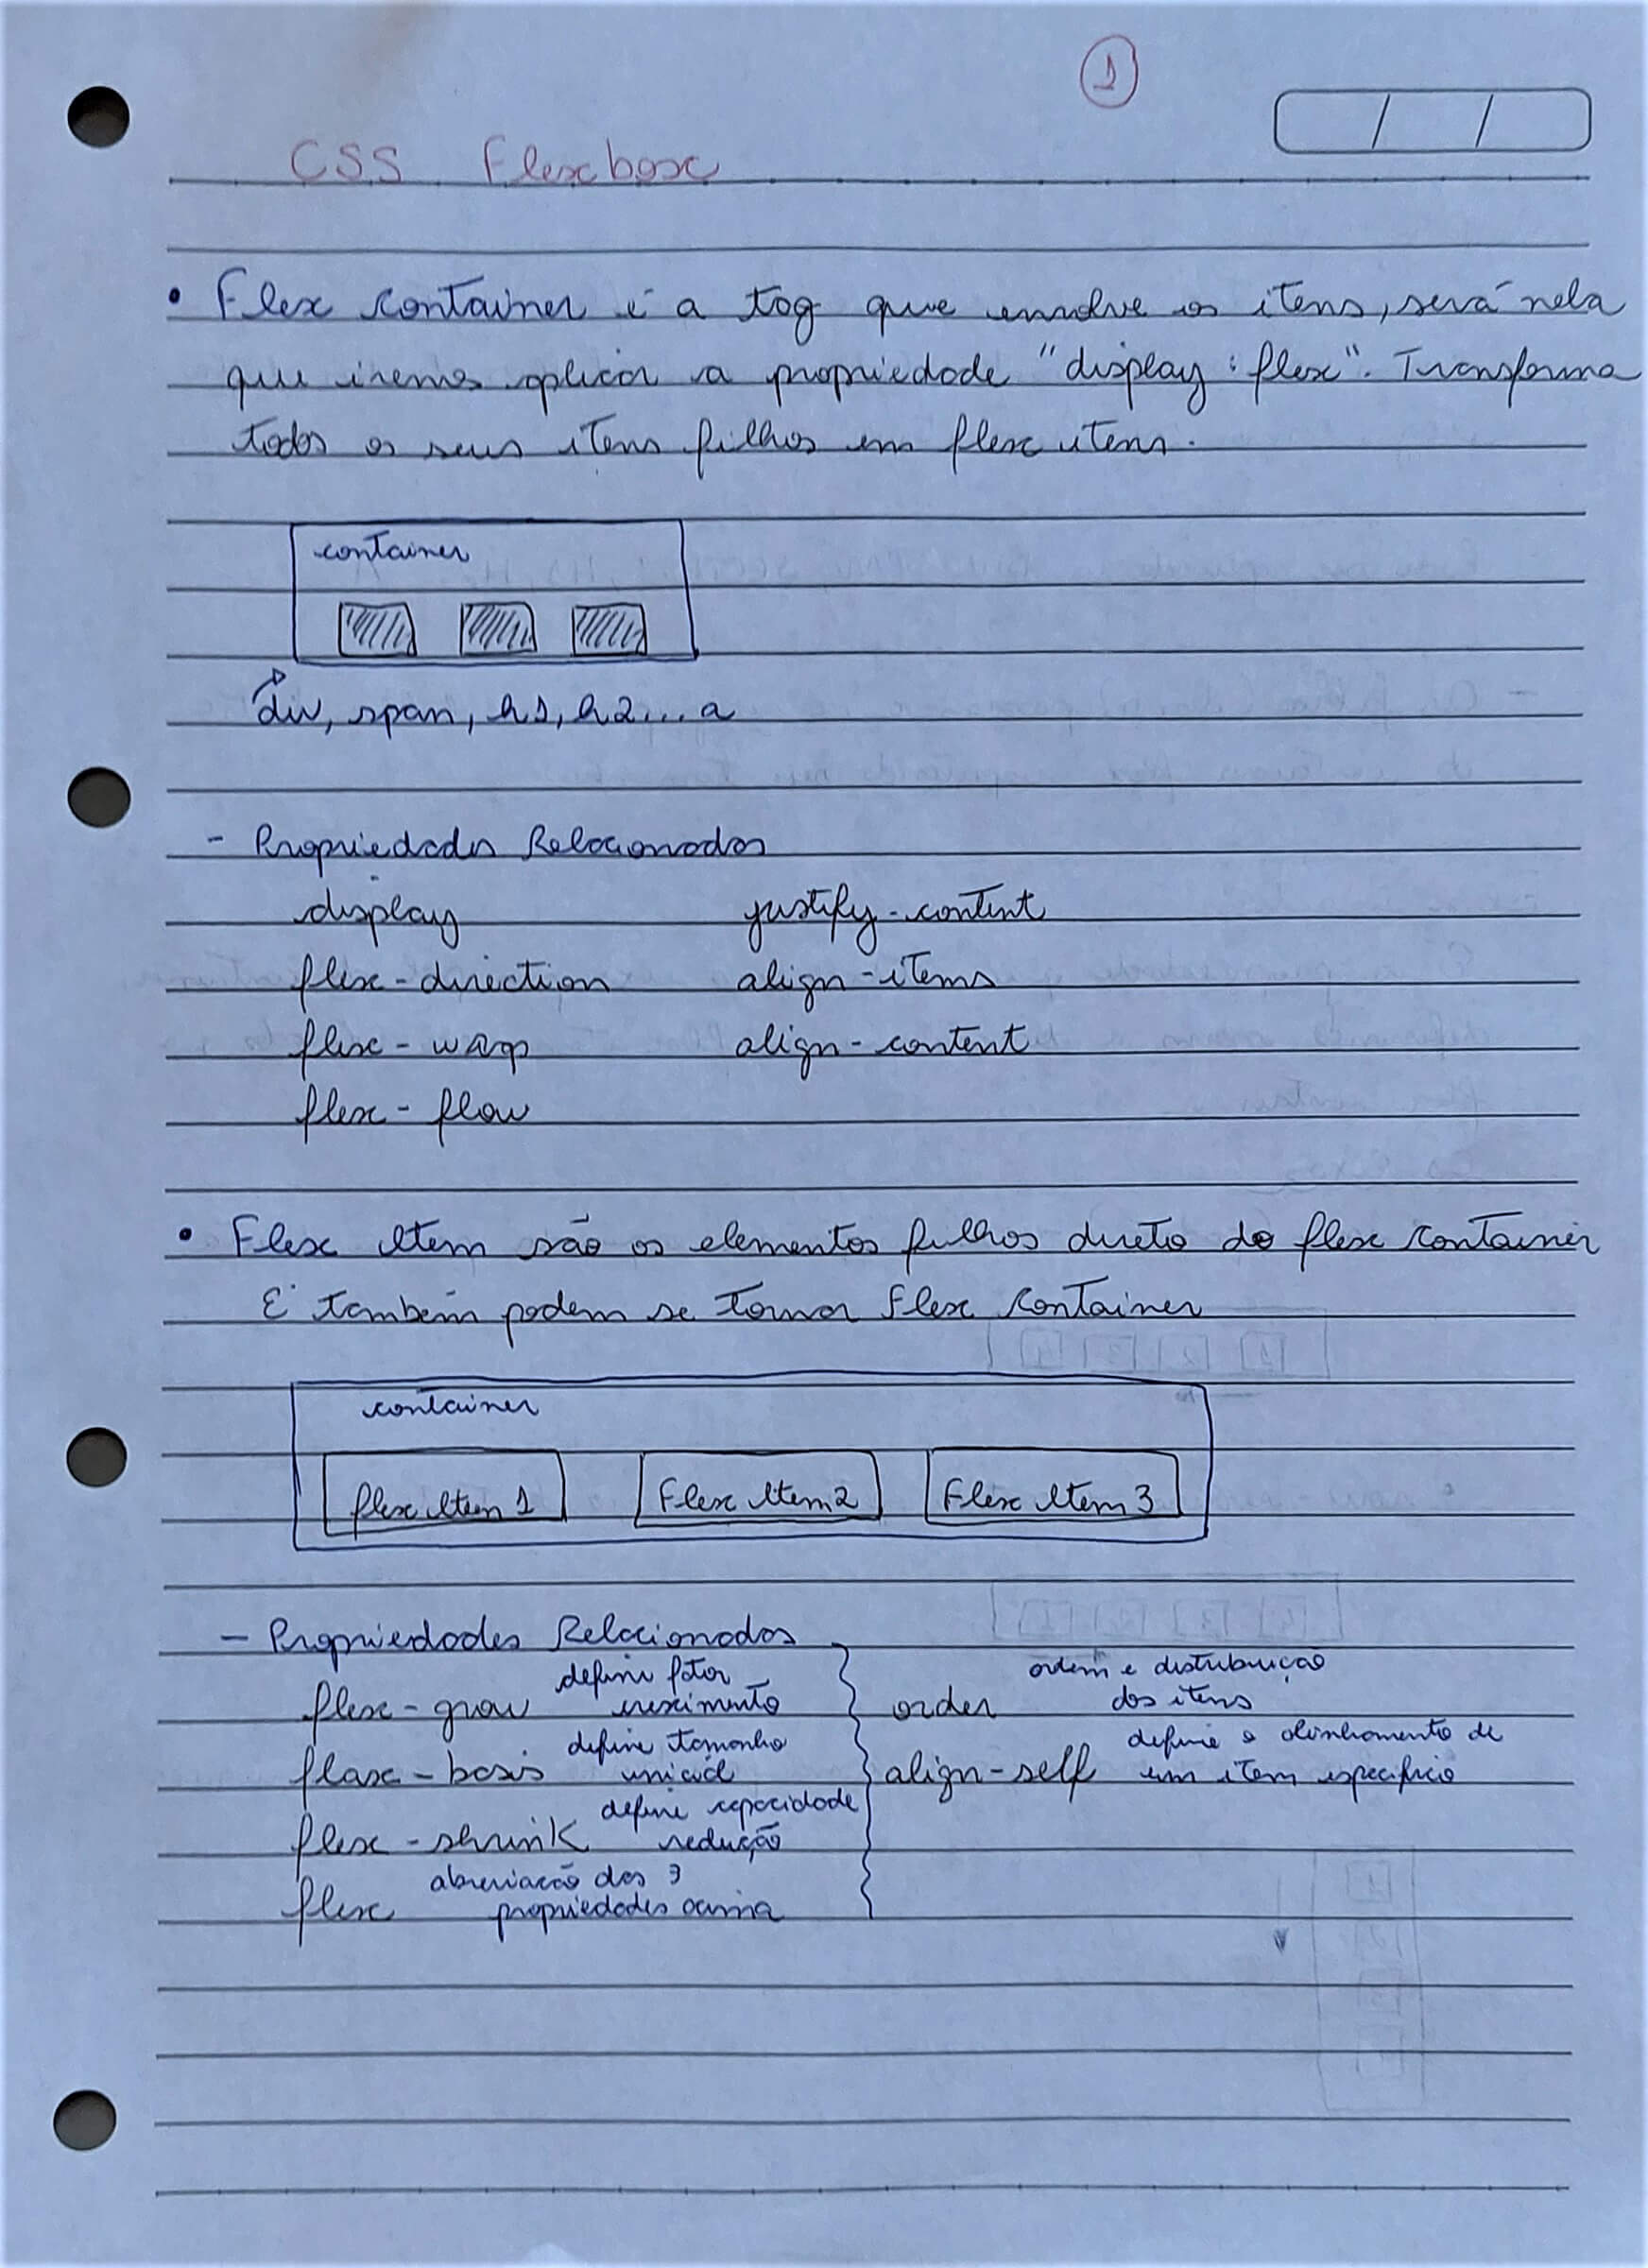 1
CSS Flexbox
• Flex Container é a tag que envolve os itens, será nela
que iremos aplicar a propriedade "display: flex". Transforma
todos os seus itens filhos em flex itens.
container
div, span, h1, h2... a
- Propriedades Relacionadas
display justify-content
flex-direction align-items
flex-wrap align-content
flex-flow
• Flex Item são os elementos filhos direto do flex container
E também podem se tornar Flex Container
container
flex Item 1 Flex Item 2 Flex Item 3
- Propriedades Relacionadas
flex-grow define fator crescimento
flex-basis define tamanho inicial
flex-shrink define capacidade redução
flex abreviação das 3 propriedades acima
order ordem e distribuição dos itens
align-self define o alinhamento de um item especifico